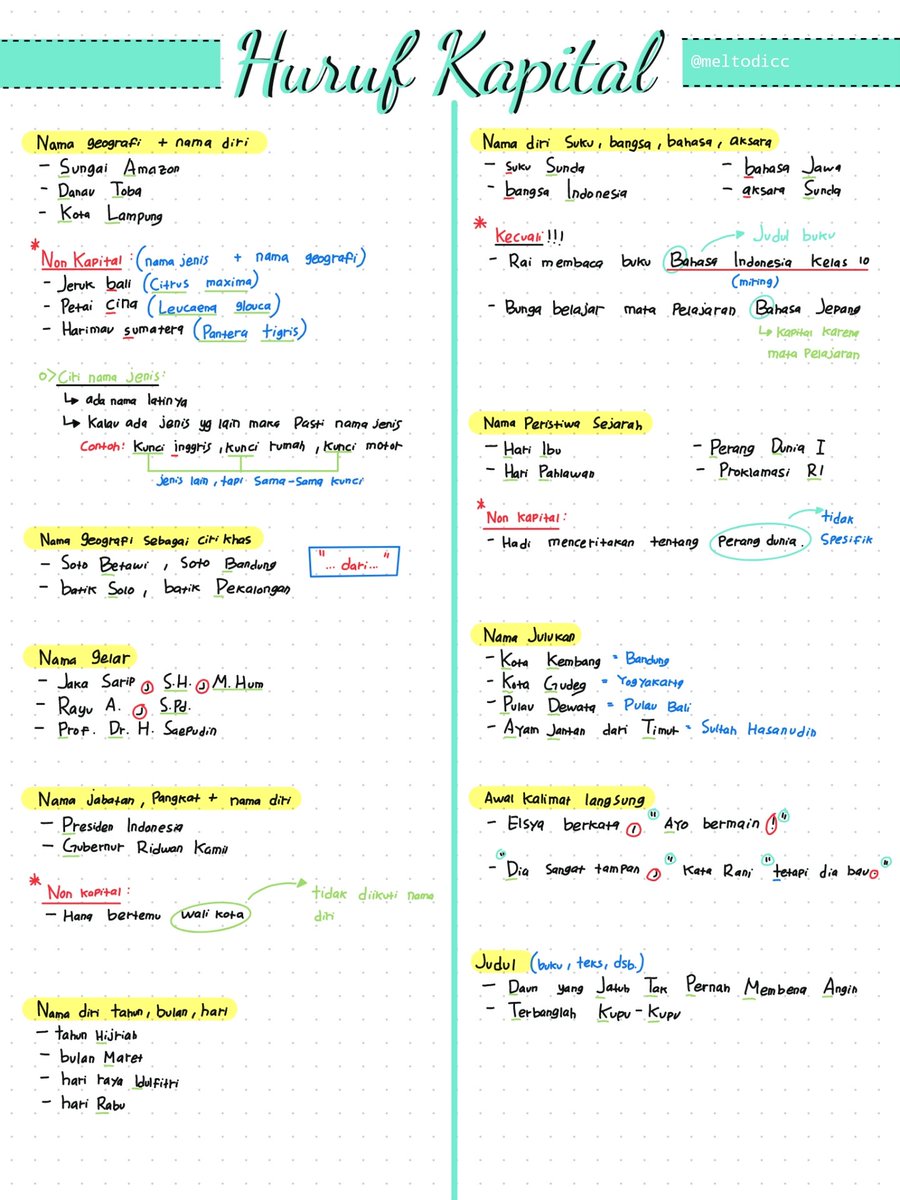 Huruf Kapital
@meltodicc
Nama geografi + nama diri
- Sungai Amazon
- Danau Toba
- Kota Lampung
* Non Kapital : (nama jenis + nama geografi)
- Jeruk bali (Citrus maxima)
- Petai cina (Leucaena glauca)
- Harimau sumatera (Pantera tigris)
o> Ciri nama jenis:
↳ ada nama latinya
↳ Kalau ada jenis yg lain maka Pasti nama jenis
Contoh: Kunci inggris, kunci rumah, kunci motor
jenis lain, tapi sama-sama kunci
Nama geografi sebagai ciri khas
- Soto Betawi, Soto Bandung
- batik Solo, batik Pekalongan
"... dari..."
Nama gelar
- Jaka Sarip , S.H. , M.Hum
- Rayu A. , S.Pd.
- Prof. Dr. H. Saepudin
Nama jabatan, Pangkat + nama diri
- Presiden Indonesia
- Gubernur Ridwan Kamil
* Non Kapital :
- Hana bertemu wali kota
tidak diikuti nama
diri
Nama diri tahun, bulan, hari
- tahun Hijriah
- bulan Maret
- hari raya Idulfitri
- hari Rabu
Nama diri Suku, bangsa, bahasa, aksara
- suku Sunda
- bahasa Jawa
- bangsa Indonesia
- aksara Sunda
* Kecuali !!!
Judul buku
- Rai membaca buku Bahasa Indonesia Kelas 10
(miring)
- Bunga belajar mata Pelajaran Bahasa Jepang
↳ Kapital karena
mata Pelajaran
Nama Peristiwa Sejarah
- Hari Ibu
- Perang Dunia I
- Hari Pahlawan
- Proklamasi RI
* Non Kapital :
- Hadi menceritakan tentang Perang dunia.
tidak
Spesifik
Nama Julukan
- Kota Kembang = Bandung
- Kota Gudeg = Yogyakarta
- Pulau Dewata = Pulau Bali
- Ayam Jantan dari Timur = Sultan Hasanudin
Awal Kalimat langsung
- Elsya berkata , "Ayo bermain !"
- "Dia sangat tampan ," kata Rani "tetapi dia bau."
Judul (buku, teks, dsb.)
- Daun yang Jatuh Tak Pernah Membenci Angin
- Terbanglah Kupu-Kupu